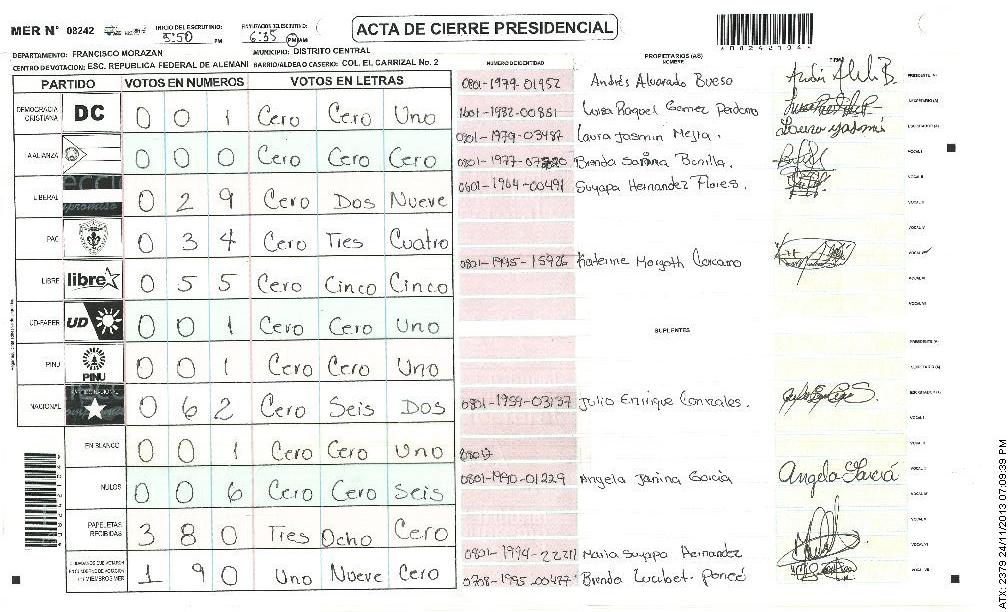 MER Nº 08242 INICIO DEL ESCRUTINIO: 5:50 PM 6:35 PM ACTA DE CIERRE PRESIDENCIAL
DEPARTAMENTO: FRANCISCO MORAZAN MUNICIPIO: DISTRITO CENTRAL
CENTRO DE VOTACION: ESC. REPUBLICA FEDERAL DE ALEMANI BARRIO/ALDEA O CASERIO: COL. EL CARRIZAL No. 2
PARTIDO VOTOS EN NUMEROS VOTOS EN LETRAS
DEMOCRACIA CRISTIANA DC 0 0 1 Cero Cero Uno
AALIANZA 0 0 0 Cero Cero Cero
LIBERAL 0 2 9 Cero Dos Nueve
PAC 0 3 4 Cero Tres Cuatro
LIBRE libre 0 5 5 Cero Cinco Cinco
UD-FAPER UD 0 0 1 Cero Cero Uno
PINU PINU 0 0 1 Cero Cero Uno
NACIONAL 0 6 2 Cero Seis Dos
EN BLANCO 0 0 1 Cero Cero Uno
NULOS 0 0 6 Cero Cero Seis
PAPELETAS RECIBIDAS 3 8 0 Tres Ocho Cero
1 9 0 Uno Nueve Cero
NUMERO DE IDENTIDAD PROPIETARIOS (AS) NOMBRE FIRMA
0801-1979-01952 Andrés Alvarado Bueso PRESIDENTE (A)
1601-1982-00851 Luisa Raquel Gomez Perdomo SECRETARIO (A)
0801-1979-03487 Laura Jasmin Mejia. ESCRUTADOR (A)
Brenda Bonilla. VOCAL I
0601-1964-00491 Suyapa Hernandez Flores. VOCAL II
0801-1995-15926 Katerine Margoth Carcamo
SUPLENTES
PRESIDENTE (A)
SECRETARIO (A)
0801-1959-03137 Julio Enrique Gonzales. ESCRUTADOR (A)
0801-1990-01229 Angela Janina Garcia Angela Garcia
0801-1994-22211 Maria Suyapa Hernandez
0708-1995-00477 Brenda Ponce
ATX: 2379 24/11/2013 07:09:39 PM